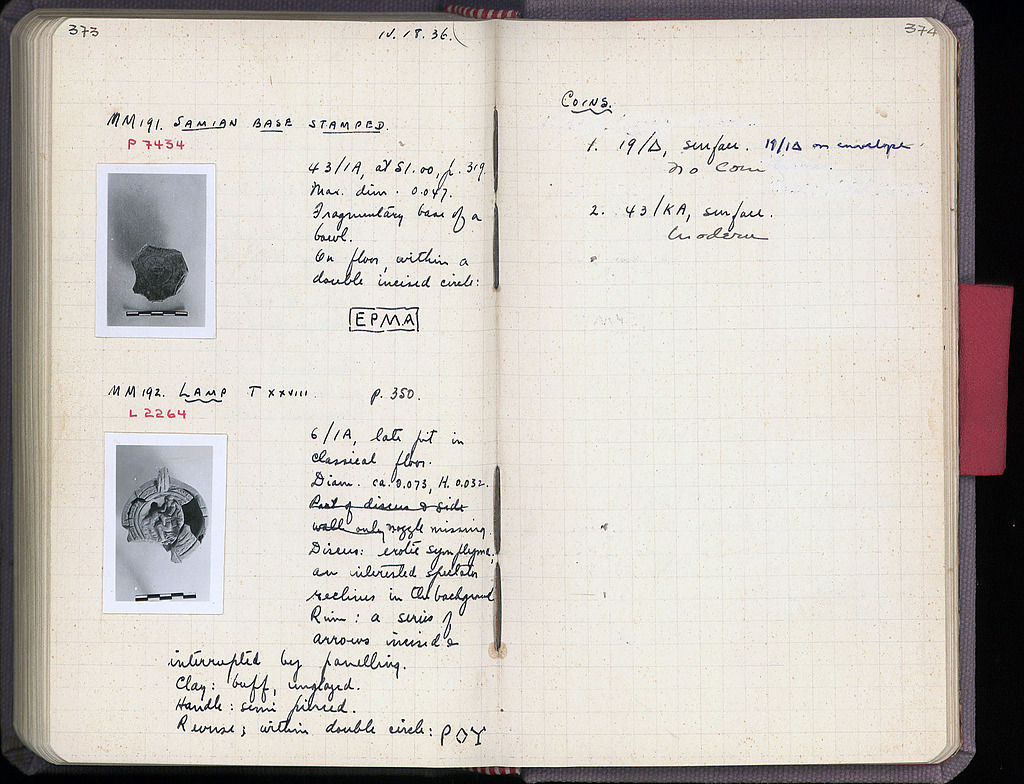 373
IV. 18. 36.
MM191. SAMIAN BASE STAMPED.
P 7434
43/IA, at 51.00, p. 319.
Max. dim. 0.047.
Fragmentary base of a
bowl.
On floor, within a
double incised circle:
EPMA
MM192. LAMP T XXVIII. p. 350.
L 2264
6/IA, late pit in
classical floor.
Diam. ca. 0.073, H. 0.032.
Part of discus & side
wall only nozzle missing.
Discus: erotic symplegma,
an interested spectator
reclines in the background
Rim: a series of
arrows incised &
interrupted by panelling.
Clay: buff, unglazed.
Handle: semi pierced.
Reverse; within double circle: ΡΟΥ
374
COINS.
1. 19/Δ, surface. 19/IΔ on envelope.
No Coin
2. 43/KA, surface.
Modern